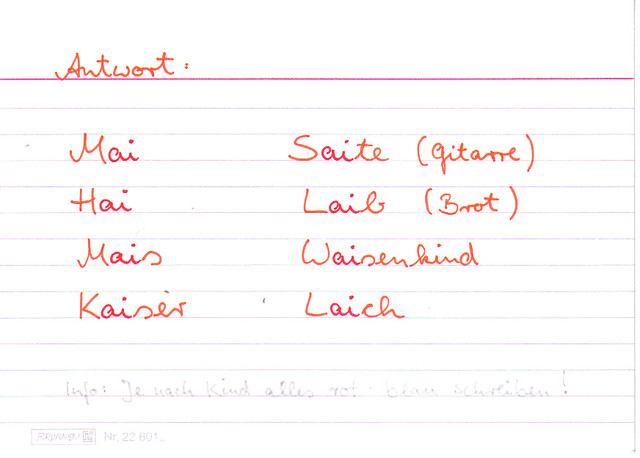 Antwort:
Mai Saite (Gitarre)
Hai Laib (Brot)
Mais Waisenkind
Kaiser Laich
Info: Je nach Kind alles rot - blau schreiben!
BRUNNEN Nr. 22 601